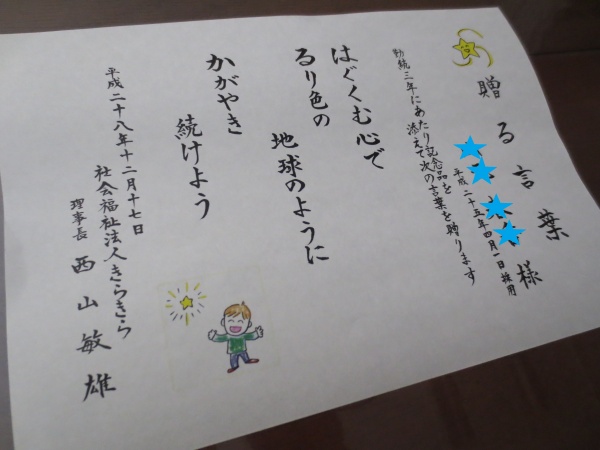 贈る言葉
様
平成二十五年四月一日採用
勤続三年にあたり記念品を
添えて次の言葉を贈ります
はぐくむ心で
るり色の
地球のように
かがやき
続けよう
平成二十八年十二月十七日
社会福祉法人きらきら
理事長 西山敏雄